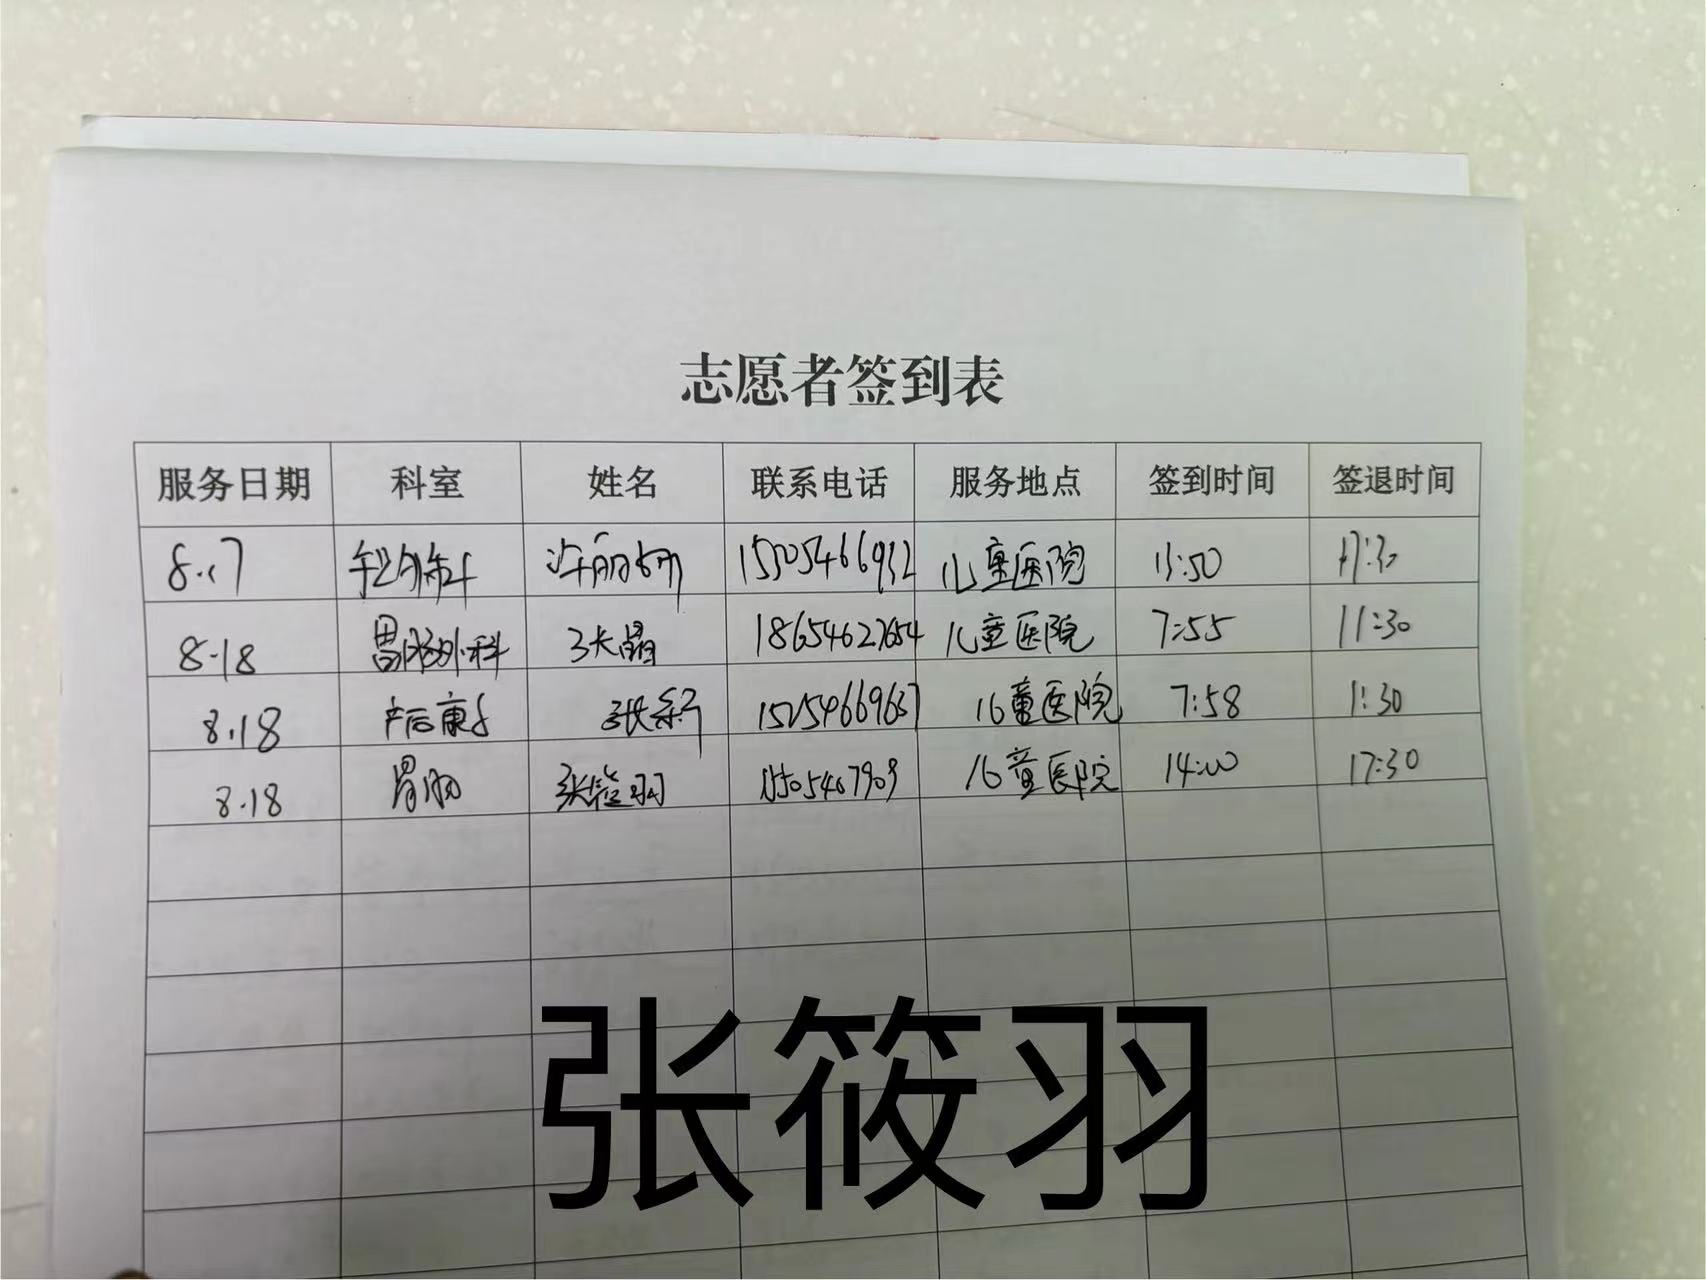 志愿者签到表
服务日期 科室 姓名 联系电话 服务地点 签到时间 签退时间
8.17 许丽娜 儿童医院 13:50 17:30
8.18 胃肠外科 张晶 18654627654 儿童医院 7:55 11:30
8.18 产后康复 张 15254669637 儿童医院 7:58 1:30
8.18 胃肠 张筱羽 15505467909 儿童医院 14:00 17:30
张筱羽